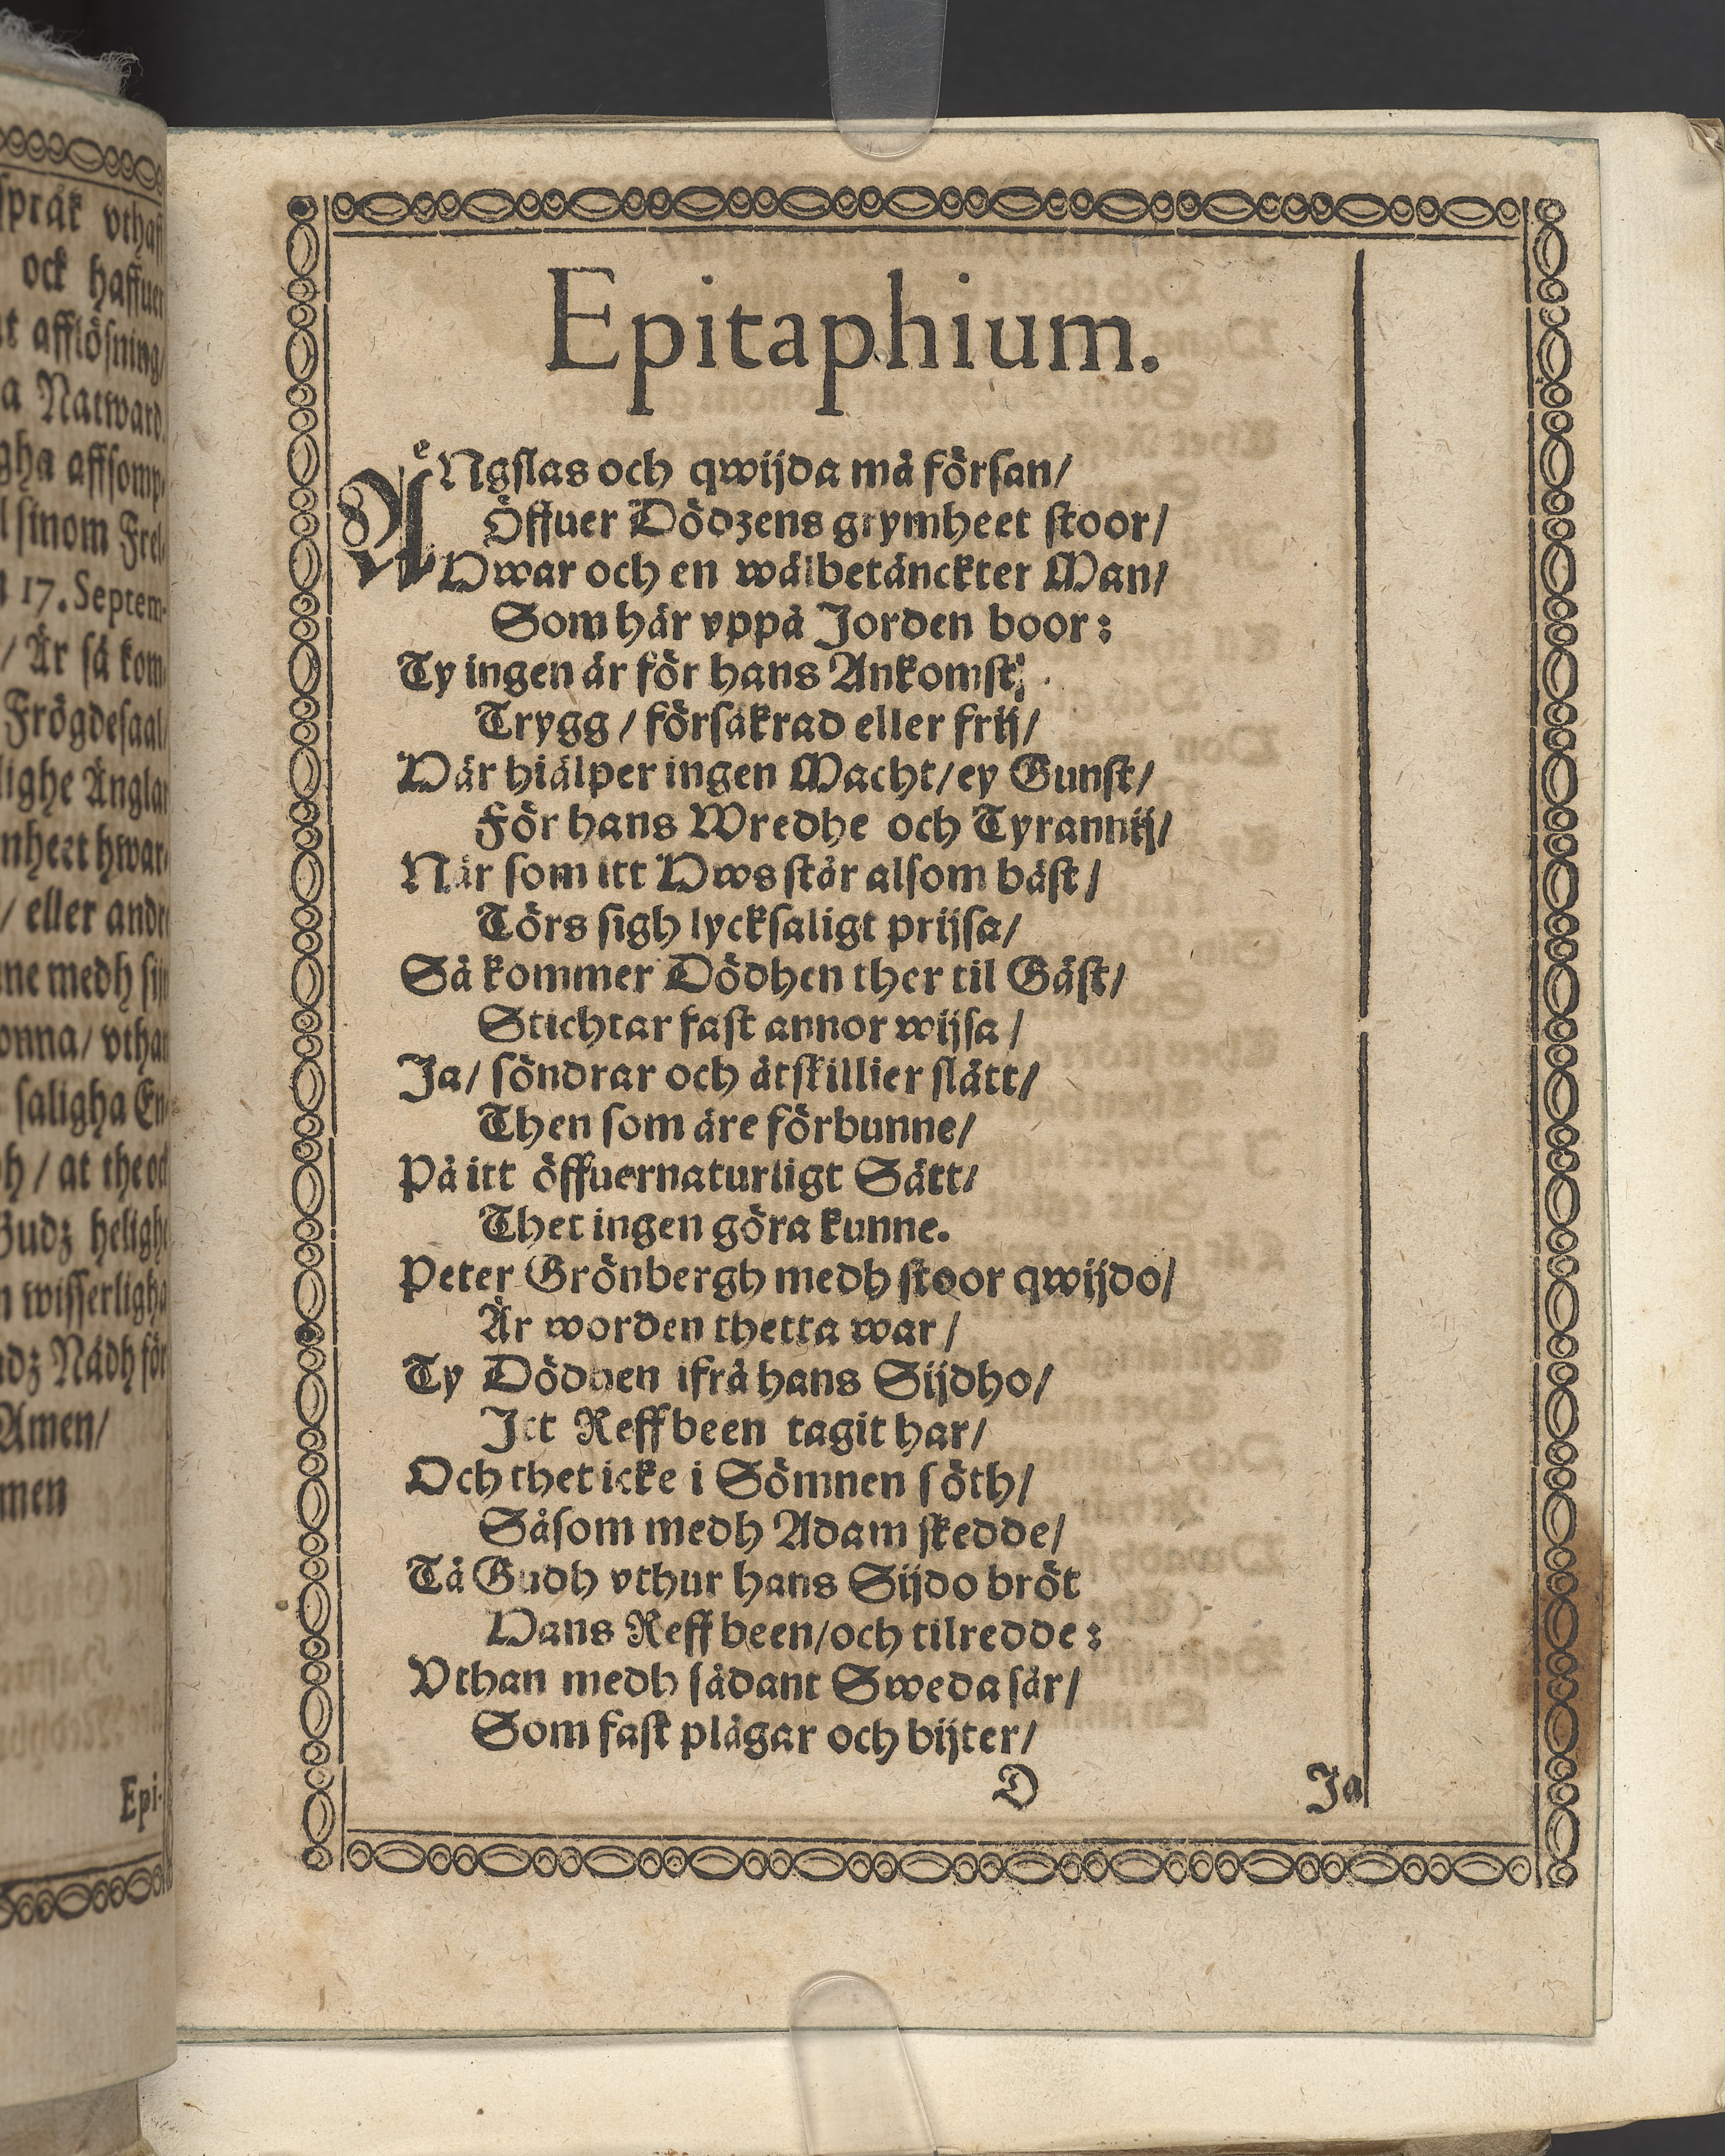 språk vthaff
ock haffuer
afflösning/
Natward.
gha affsomp-
sinom Frel-
17. Septem-
/ Är så kom-
Frögdesaal/
lighe Änglar
nheet hwar-
/ eller andre
ne medh sijn
onna/ vthan
saligha En-
h/ at the och
Gudz helighe
wisserligha
dz Nådh för
Amen/
men
Epi-
Epitaphium.
ÄNgslas och qwijda må försan/
Öffuer Dödzens grymheet stoor/
Hwar och en wälbetänckter Man/
Som här vppå Jorden boor:
Ty ingen är för hans Ankomst;
Trygg/ försäkrad eller frij/
Här hiälper ingen Macht/ ey Gunst/
För hans Wredhe och Tyrannij/
När som itt Hws står alsom bäst/
Törs sigh lycksaligt prijsa/
Så kommer Dödhen ther til Gäst/
Stichtar fast annor wijsa/
Ja/ söndrar och åtskillier slätt/
Then som äre förbunne/
På itt öffuernaturligt Sätt/
Thet ingen göra kunne.
Peter Grönbergh medh stoor qwijdo/
Är worden thetta war/
Ty Dödhen ifrå hans Sijdho/
Itt Reffbeen tagit har/
Och thet icke i Sömnen söth/
Såsom medh Adam skedde/
Tå Gudh vthur hans Sijdo bröt
Hans Reffbeen/ och tilredde:
Vthan medh sådant Sweda sår/
Som fast plågar och bijter/
D
Ja